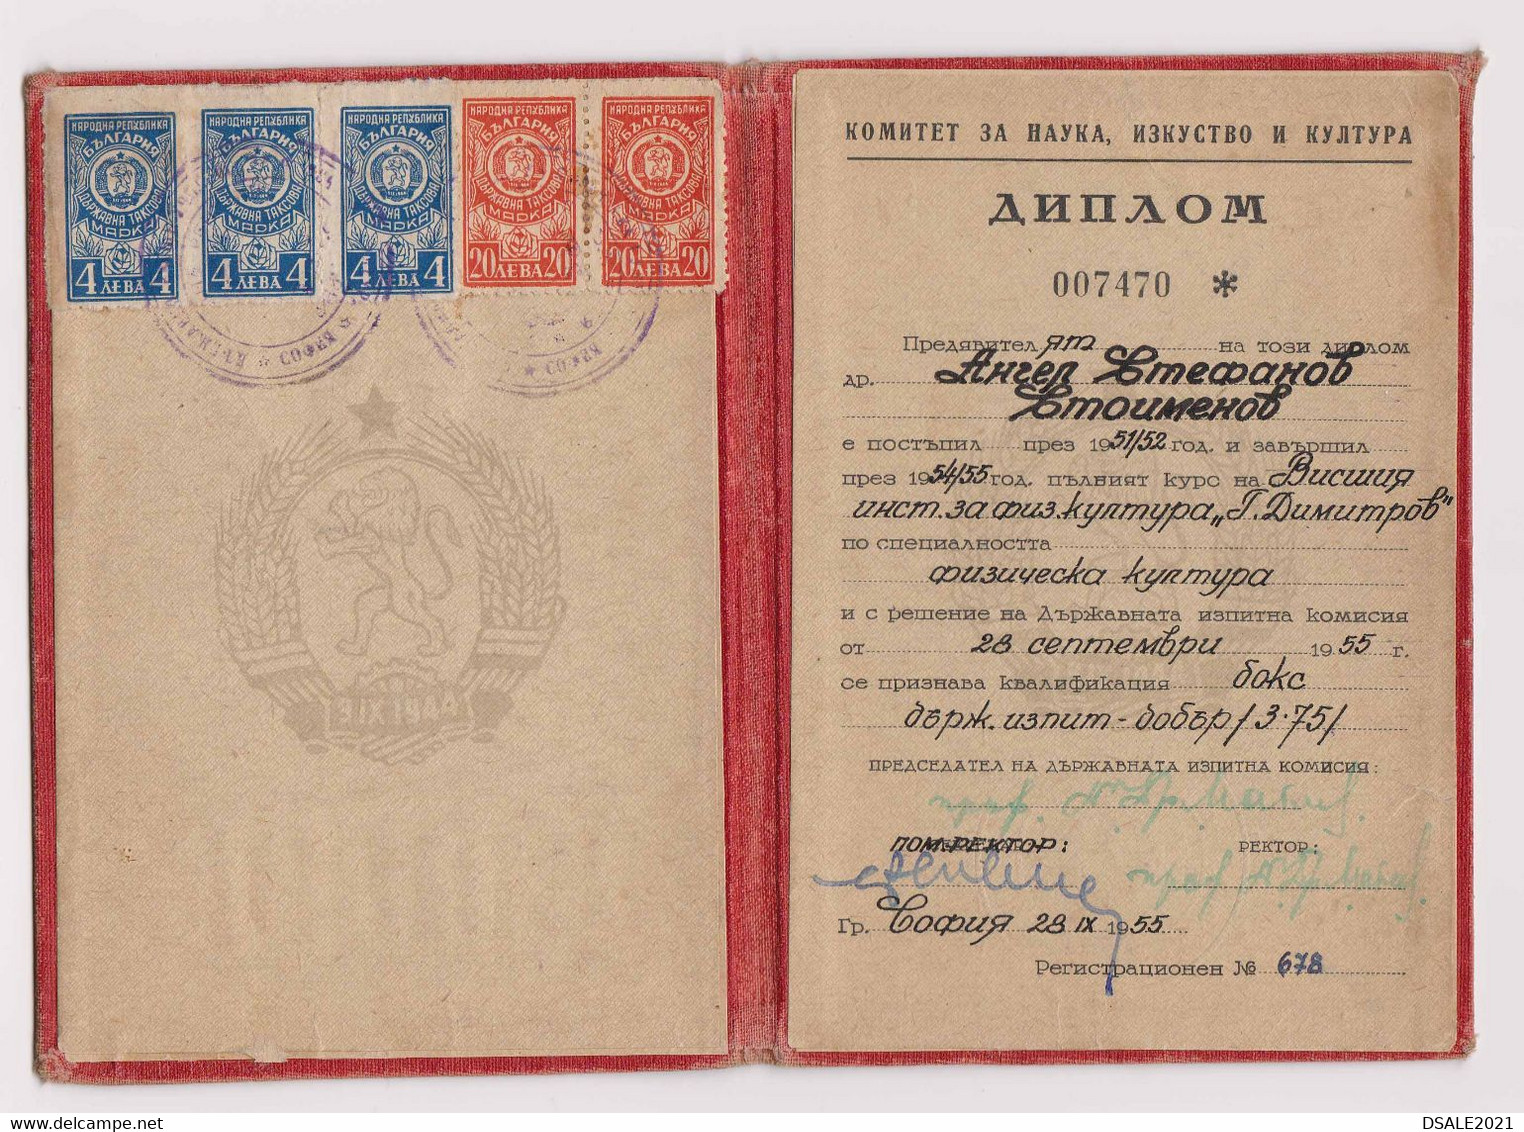 НАРОДНА РЕПУБЛИКА
БЪЛГАРИЯ
ДЪРЖАВНА ТАКСОВА
МАРКА
4 ЛЕВА 4
НАРОДНА РЕПУБЛИКА
БЪЛГАРИЯ
ДЪРЖАВНА ТАКСОВА
МАРКА
4 ЛЕВА 4
НАРОДНА РЕПУБЛИКА
БЪЛГАРИЯ
ДЪРЖАВНА ТАКСОВА
МАРКА
4 ЛЕВА 4
НАРОДНА РЕПУБЛИКА
БЪЛГАРИЯ
ДЪРЖАВНА ТАКСОВА
МАРКА
20 ЛЕВА 20
НАРОДНА РЕПУБЛИКА
БЪЛГАРИЯ
ДЪРЖАВНА ТАКСОВА
МАРКА
20 ЛЕВА 20
КОМИТЕТ ЗА НАУКА, ИЗКУСТВО И КУЛТУРА
ДИПЛОМ
007470 *
Предявителят на този диплом
др. Ангел Стефанов
Стоименов
е постъпил през 1951/52 год. и завършил
през 1954/55 год. пълният курс на Висшия
инст. за физ. култура „Г. Димитров"
по специалността
физическа култура
и с решение на Държавната изпитна комисия
от 28 септември 1955 г.
се признава квалификация бокс
държ. изпит - добър /3.75/
ПРЕДСЕДАТЕЛ НА ДЪРЖАВНАТА ИЗПИТНА КОМИСИЯ:
проф.
ПОМ. РЕКТОР: РЕКТОР:
проф.
Гр. София 28 IX 1955
Регистрационен № 678
delcampe.net
DSALE2021